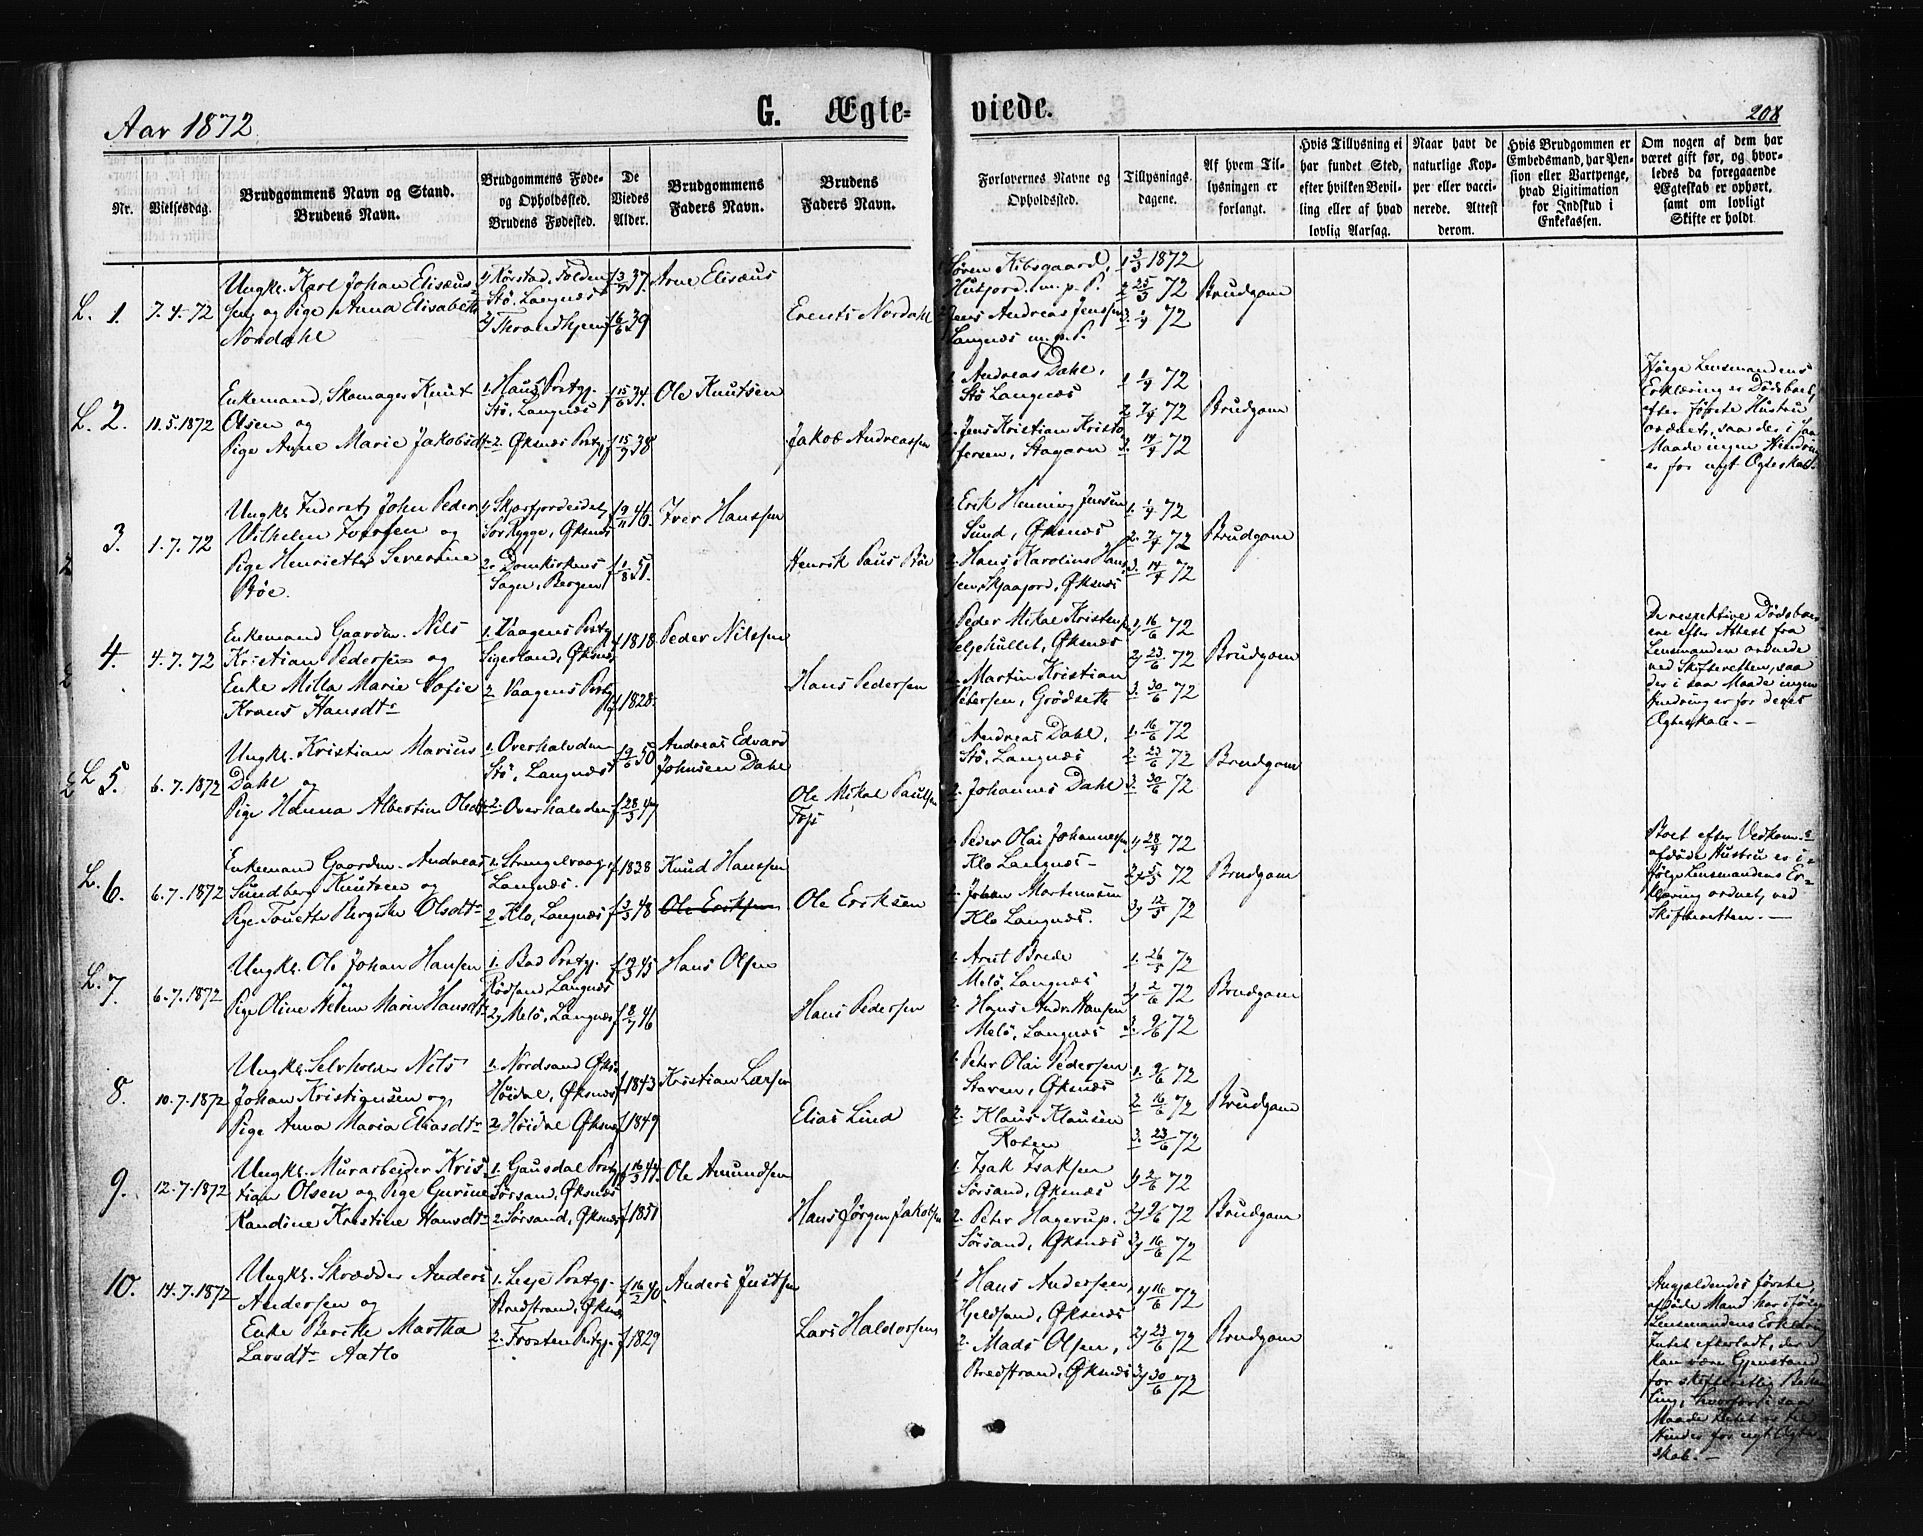 Aar 1872.
G. Ægte-
viede.
208
Nr.
Vielsesdag.
Brudgommens Navn og Stand.
Brudens Navn.
Brudgommens Føde-
og Opholdssted.
Brudens Fødested.
De
Viedes
Alder.
Brudgommens
Faders Navn.
Brudens
Faders Navn.
Forlovernes Navne og
Opholdssted.
Tillysnings-
dagene.
Af hvem Til-
lysningen er
forlangt.
Hvis Tillysning ei
har fundet Sted,
efter hvilken Bevil-
ling eller af hvad
lovlig Aarsag.
Naar havt de
naturlige Kop-
per eller vacci-
nerede. Attest
derom.
Hvis Brudgommen er
Embedsmand, har Pen-
sion eller Vartpenge,
hvad Ligitimation
for Indskud i
Enkekassen.
Om nogen af dem har
været gift før, og hvor-
ledes da foregaaende
Ægteskab er ophørt,
samt om lovligt
Skifte er holdt.
L. 1.
7.4.72
Ungk. Karl Johan Elisæus-
sen og Pige Anna Elisabeth
Nordahl
Stö, Langnæs
2) Throndhjem
3/7 37.
6/6 39
Arne Elisæus
Erents Nordahl
Søren Kibsgaard,
m. p. P.
Jens Andreas Jenssen
Langnæs m. p. P.
1 3/3 1872
2 25/3 72
3. 1/4 72
Brudgom
L. 2.
11.5.1872
Enkemand, Skomager Knut
Olsen og
Pige Anne Marie Jakobsdt
1. Haus Prstgj.
Stö, Langnæs
2. Øksnæs Prstgj
f 15/6 34.
f 15/9 38
Ole Knutsen
Jakob Andreassen
1. Andreas Dahl,
Stö Langnæs
2. Jens Kristian Kristo
fersen, Stagarn
1 1/4 72
2. 7/4 72
3. 14/4 72
Brudgom
Ifølge Lensmandens
Erklæring er Dødsboet
efter første Hustru
ordnet, saa der i saa
Maade ingen Hindring
er for nyt Ægteskab.
3.
1.7.72
Ungk. Inderst John Peder
Vilhelm Iversen og
Pige Henriette Severine
Böe.
1) Skjærfjordeidet,
Öksnæs
2. Domkirkens
Sogn, Bergen
f 9/11 46.
f 1/8 51.
Iver Hanssen
Henrik Paus Böe
1. Erik Henning Jensen
Sund, Øksnæs
2. Hans Karolius Han
sen, Skjaafjord, Øksnæs
1. 1/4 72
2. 7/4 72
3. 14/4 72
Brudgom
4.
4.7.72
Enkemand Gaardm. Nils
Kristian Pedersen og
Enke Milla Marie Sofie
Krans Hansdtr
1. Vaagens Prstgj
Sigerland, Øksnæs
2. Vaagens Prstgj
f 1818
f 1828
Peder Nilssen
Hans Pedersen
Peder Mikal Kristensen
Seljehullet, Øksnæs
2. Martin Kristian
Petersen, Grödseth
1) 16/6 72
2) 23/6 72
3. 30/6 72
Brudgom
De respektive Dødsbo
ere efter Attest fra
Lensmanden ordnede
ved Skifteretten, saa
der i saa Maade ingen
Hindring er for deres
Ægteskab. –
L 5.
6.7.1872
Ungk. Kristian Marius
Dahl og
Pige Hanna Albertine Olsdt
1. Overhalvden
Stö, Langnæs
2. Overhalvden
f 19/6 50
f 28/3 47
Andreas Edvard
Johnsen Dahl
Ole Mikal Paulsen
Foss
1. Andreas Dahl,
Stö, Langnæs
2. Johannes Dahl
1. 16/6 72
2. 23/6 72
3. 30/6 72
Brudgom
L. 6.
6.7.1872
Enkemand Gaardm. Andreas
Sundberg Knutsen og
Pige Tonette Bergitte Olsdtr
1. Strengelvaag
Langnæs.
2 Klo, Langnæs
f 1838
f 3/3 48
Knud Hanssen
Ole Eriksen
Ole Eriksen
1. Peder Olai Johannessen
Klo Langnæs –
2. Johan Mortensen
Klo Langnæs.
1) 28/4 72
2) 5/5 72
3) 12/5 72
Brudgom
Boet efter Vedkom.s
afdøde Hustru er i-
følge Lensmandens Er-
klæring ordnet ved
Skifteretten. –
L. 7.
6.7.1872
Ungk. Ole Johan Hansen
og
Pige Oline Helene Marie Hansdtr
1. Bad Prstgj.
Langnæs
2) Melö, Langnæs
f 19/3 45
f 8/7 46
Hans Olsen
Hans Pedersen
1. Arnt Brede
Melö, Langnæs
2. Hans Andr. Hansen
Melö, Langnæs
1. 26/5 72
2) 2/6 72
3. 9/6 72
Brudgom
8.
10.7.1872
Ungk. Selvholder Nils
Johan Kristiansen og
Pige Anna Maria Eliasdtr
1. Nordsand Øks.
Höidal, Øksnæs
2) Höidal Øksnæs
f 1843
f 1849
Kristian Larsen
Elias Lind
1. Peter Olai Pedersen
Staven, Øksnæs
2. Klaus Klausen
1. 9/6 72
2. 16/6 72
3. 23/6 72
Brudgom
9.
12.7.1872
Ungk. Murarbeider Kris
tian Olsen og Pige Gurine
Randine Kristine Hansdtr
1. Gausdal Prstgj
Sörsand, Øksnæs
2. Sörsand, Øksnæs
f 16/3 44.
f 1851
Ole Amundsen
Hans Jörgen Jakobsen
1. Isak Isaksen
Sörsand, Øksnæs
2. Peter Hagerup.
Sörsand, Øksnæs
1) 2/6 72
2) 9/6 72
3) 16/6 72
Brudgom
10.
14.7.1872
Ungk. Skrædder Anders
Andersen og
Enke Berithe Martha
Larsdtr Aatlo
1. Lesje Prstgj.
Bredstrand, Øksnæs
2. Frosten Prstgj.
f 16/2 40
f 1829
Anders Justsen
Lars Haldorsen
1 Hans Andersen,
Hjeldsand, Øksnæs
2. Mads Olsen,
Bredstrand, Øksnæs
1) 16/6 72
2) 23/6 72
3) 30/6 72
Brudgom
Angjældendes første,
afdøde Mand har ifølge
Lensmandens Erklæring
Intet efterladt, der
kan være Gjenstand
for skifteretlig Behand
ling, hvorfor i saa
Maade Intet er til
Hinder for nyt Ægte-
skab. –